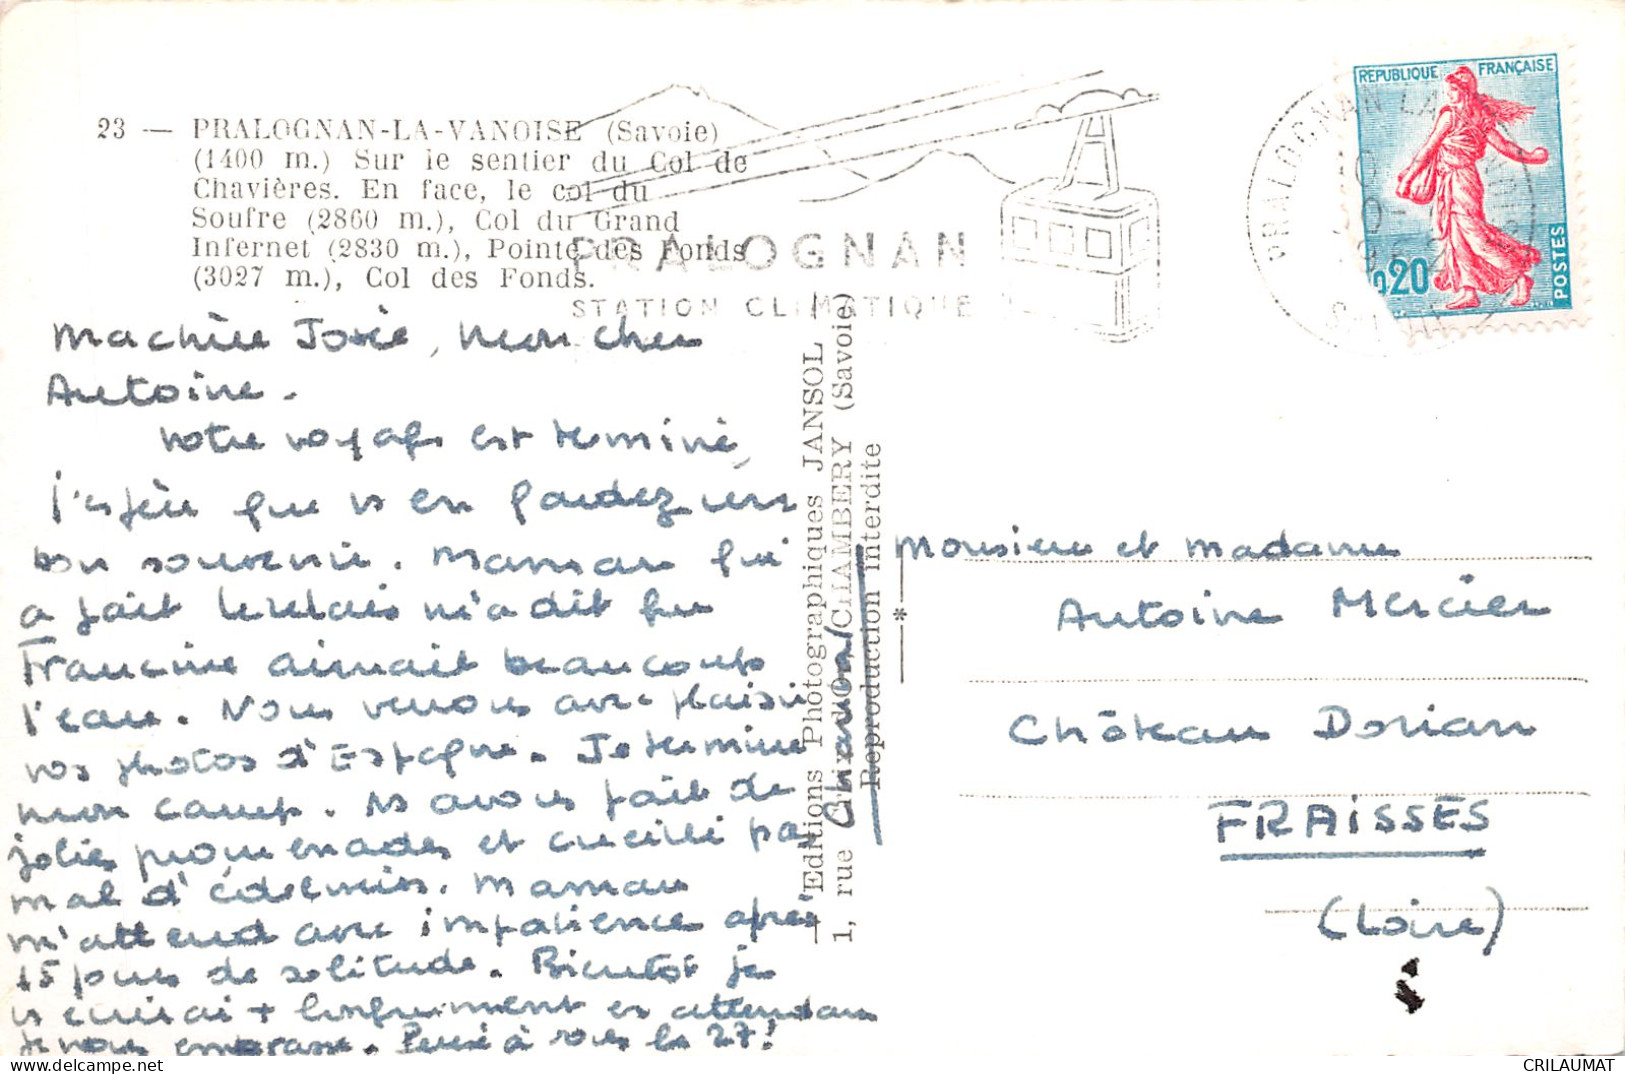 23 — PRALOGNAN-LA-VANOISE (Savoie)
(1400 m.) Sur le sentier du Col de
Chavières. En face, le col du
Soufre (2860 m.), Col du Grand
Infernet (2830 m.), Pointe des Fonds
(3027 m.), Col des Fonds.
PRALOGNAN
STATION CLIMATIQUE
PRALOGNAN LA
REPUBLIQUE FRANÇAISE
0,20
POSTES
Ma chère Josée, mon cher
Antoine.
Votre voyage est terminé,
j'espère que vs en gardez un
bon souvenir. Maman qui
a fait le relais m'a dit que
Francine aimait beaucoup
l'eau. Nous verrons avec plaisir
vos photos d'Espagne. Je termine
mon camp. Ns avons fait de
jolies promenades et cueilli pas
mal d'édelweiss. Maman
m'attend avec impatience après
15 jours de solitude. Bientôt je
vs écrirai + longuement en attendant
je vous embrasse. Pensé à vous le 27!
Editions Photographiques JANSOL
1, rue CHAMBERY (Savoie)
Reproduction interdite
*
Monsieur et Madame
Antoine Mercier
Château Dorian
FRAISSES
(Loire)
CRILAUMAT